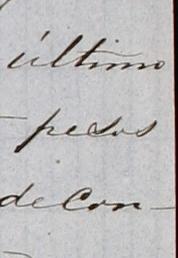 último
pesos
de Con-